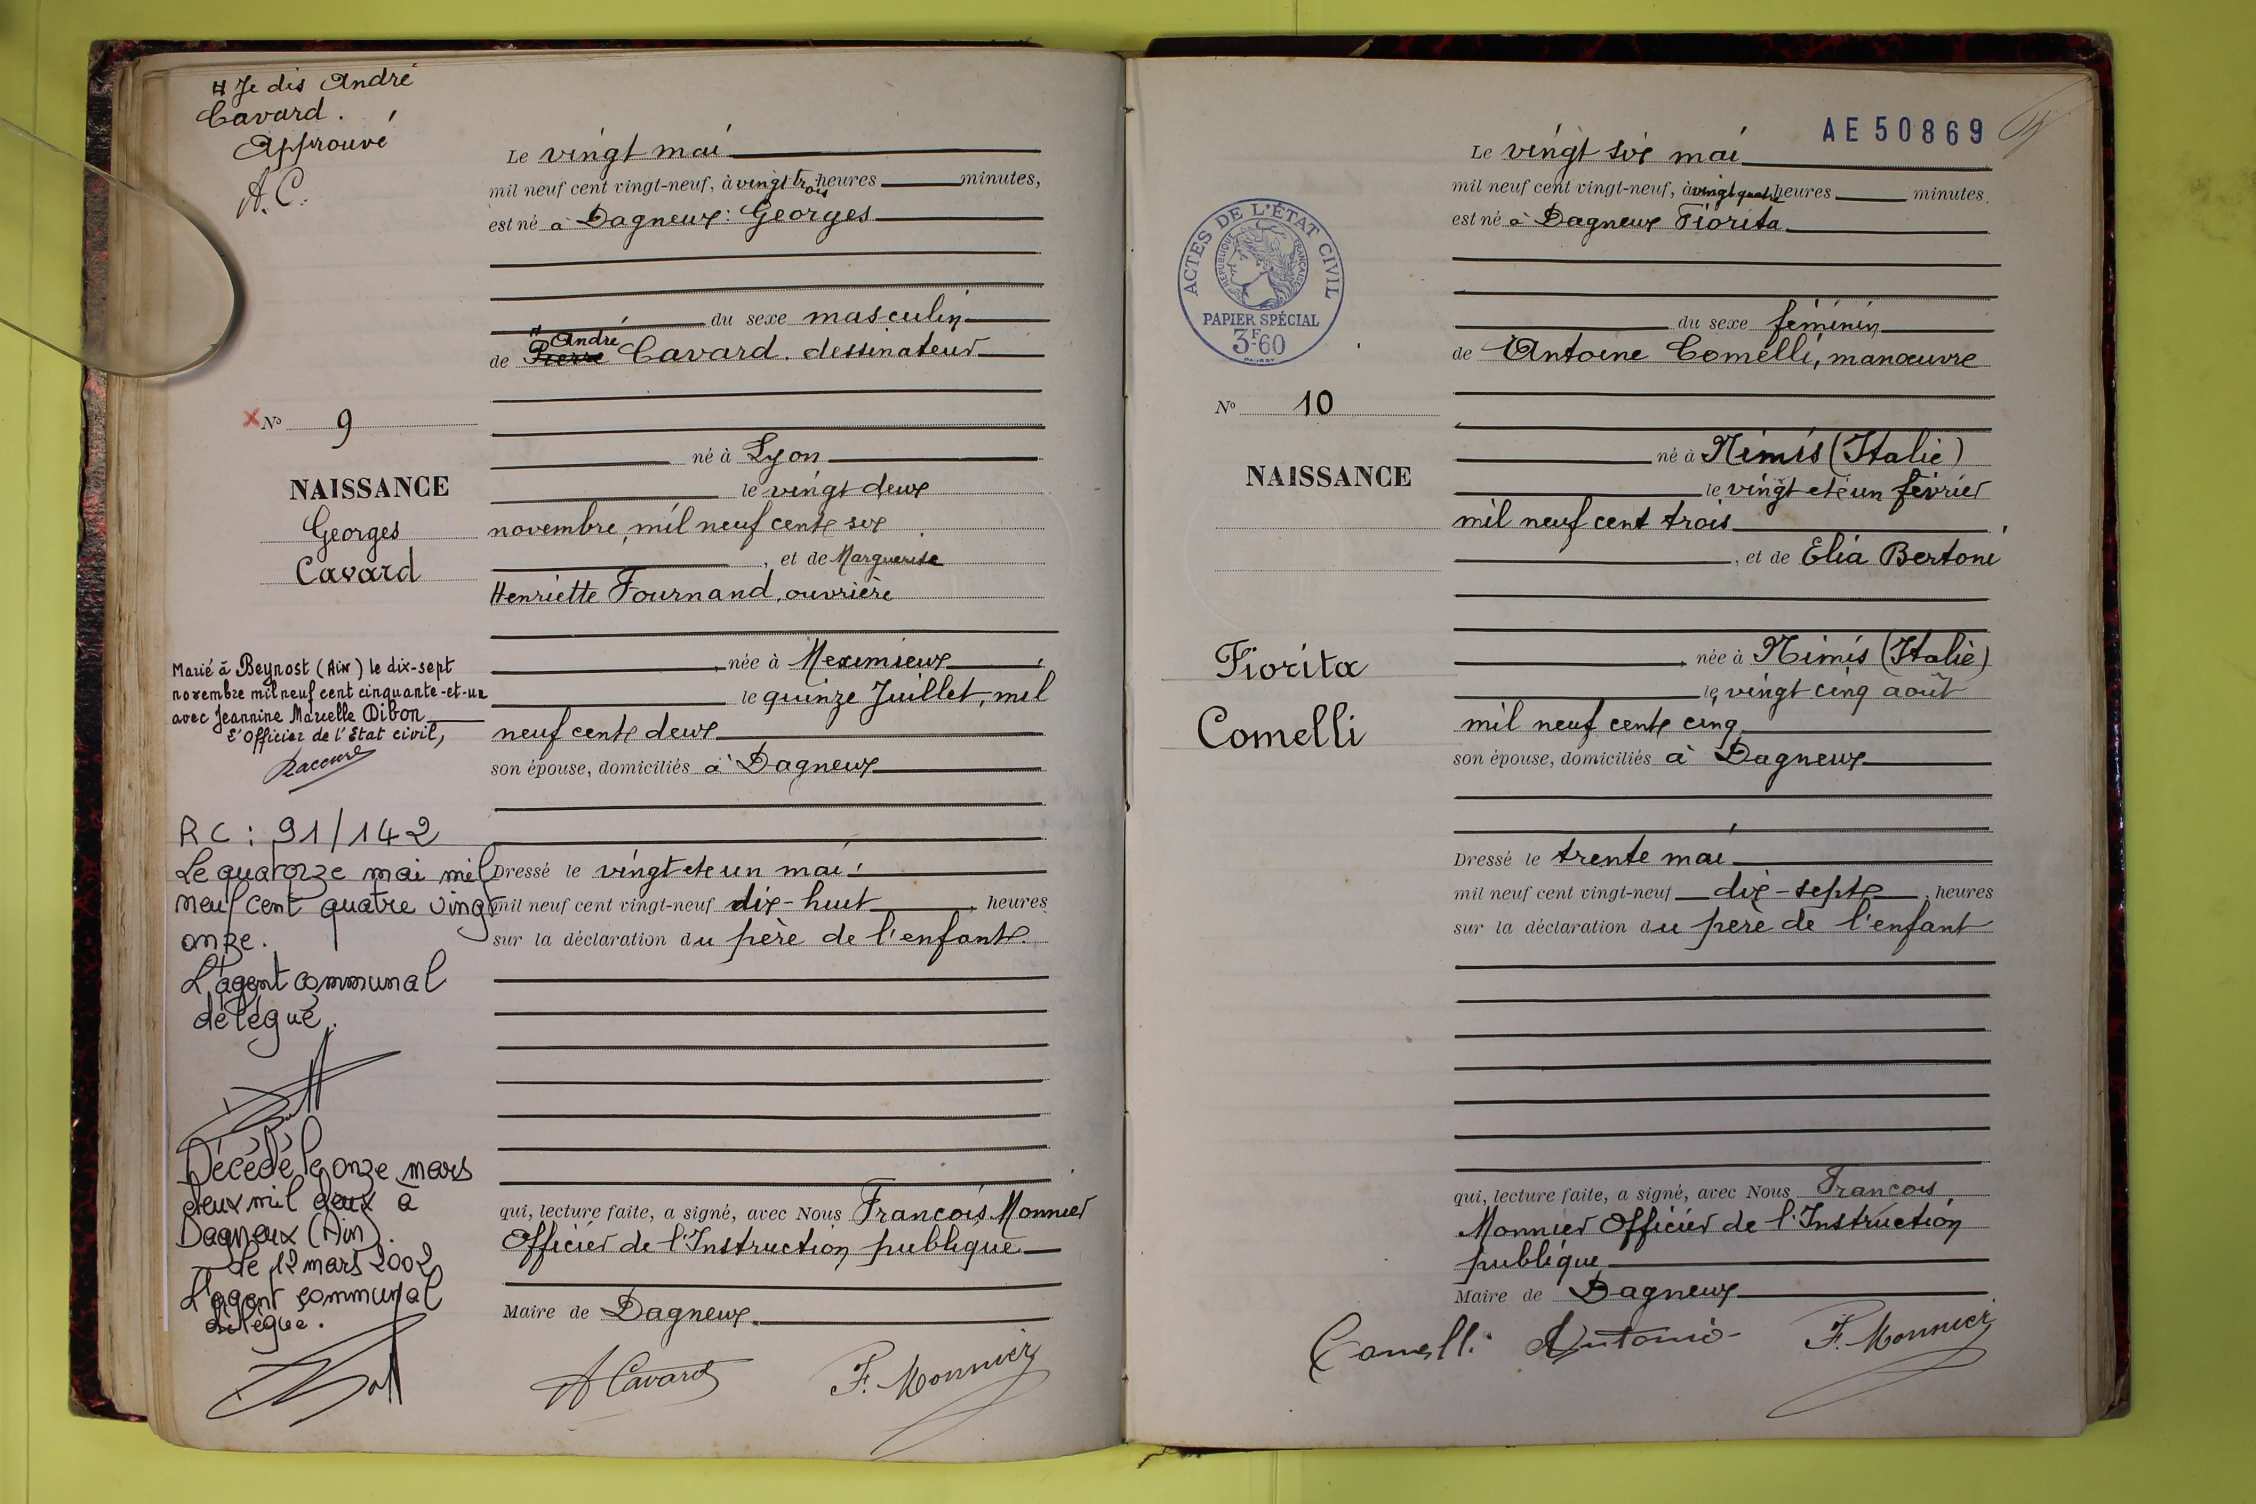 # Je dis André
Cavard.
Approuvé
A.C.
Le vingt mai
mil neuf cent vingt-neuf, à vingt trois heures minutes,
est né à Dagneux: Georges
du sexe masculin
# André
de Pierre Cavard. dessinateur
X No 9
né à Lyon
NAISSANCE
le vingt deux
Georges
novembre, mil neuf cent six
Cavard
, et de Marguerite
Henriette Fournand, ouvrière
née à Meximieux
le quinze Juillet, mil
neuf cent deux
son épouse, domiciliés à Dagneux
Marié à Beynost (Ain) le dix-sept
novembre mil neuf cent cinquante-et-un
avec Jeannine Marcelle Dibon
L'Officier de l'Etat civil,
RC : 91/142
Le quatorze mai mil
neuf cent quatre vingt
onze.
L'agent communal
délégué.
Dressé le vingt et un mai
mil neuf cent vingt-neuf dix-huit, heures
sur la déclaration du père de l'enfant.
Décédé le onze mars
deux mil deux à
Dagneux (Ain).
Le 12 mars 2002
L'agent communal
délégué.
qui, lecture faite, a signé, avec Nous François Monnier
Officier de l'Instruction publique
Maire de Dagneux.
A Cavard
F. Monnier
AE 50869
Le vingt six mai
mil neuf cent vingt-neuf, à vingt quatre heures minutes.
est né à Dagneux Fiorita
ACTES DE L'ÉTAT CIVIL
RÉPUBLIQUE FRANÇAISE
PAPIER SPÉCIAL
3F.60
du sexe féminin
de Antoine Comelli, manœuvre
No 10
né à Nimis (Italie)
NAISSANCE
le vingt et un février
mil neuf cent trois
, et de Elia Bertoni
Fiorita
née à Nimis (Italie)
le vingt cinq août
Comelli
mil neuf cent cinq
son épouse, domiciliés à Dagneux
Dressé le trente mai
mil neuf cent vingt-neuf dix-sept, heures
sur la déclaration du père de l'enfant
qui, lecture faite, a signé, avec Nous François
Monnier Officier de l'Instruction
publique
Maire de Dagneux
Comelli Antonio
F. Monnier